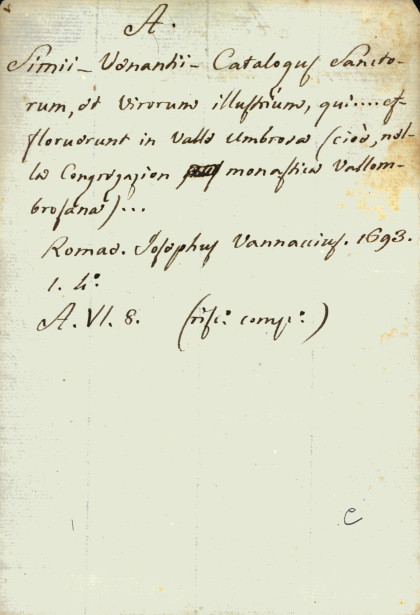 A.
Simii - Venantii - Catalogus Sancto-
rum, et virorum illustrium, qui.... ef-
floruerunt in Valle Umbrosa (cioè, nel-
la Congregazion monastica Vallom-
brosana)...
Romae. Josephus Vannaccius. 1693.
1. 4°.
A. VI. 8. (risc.° comp.°)
C